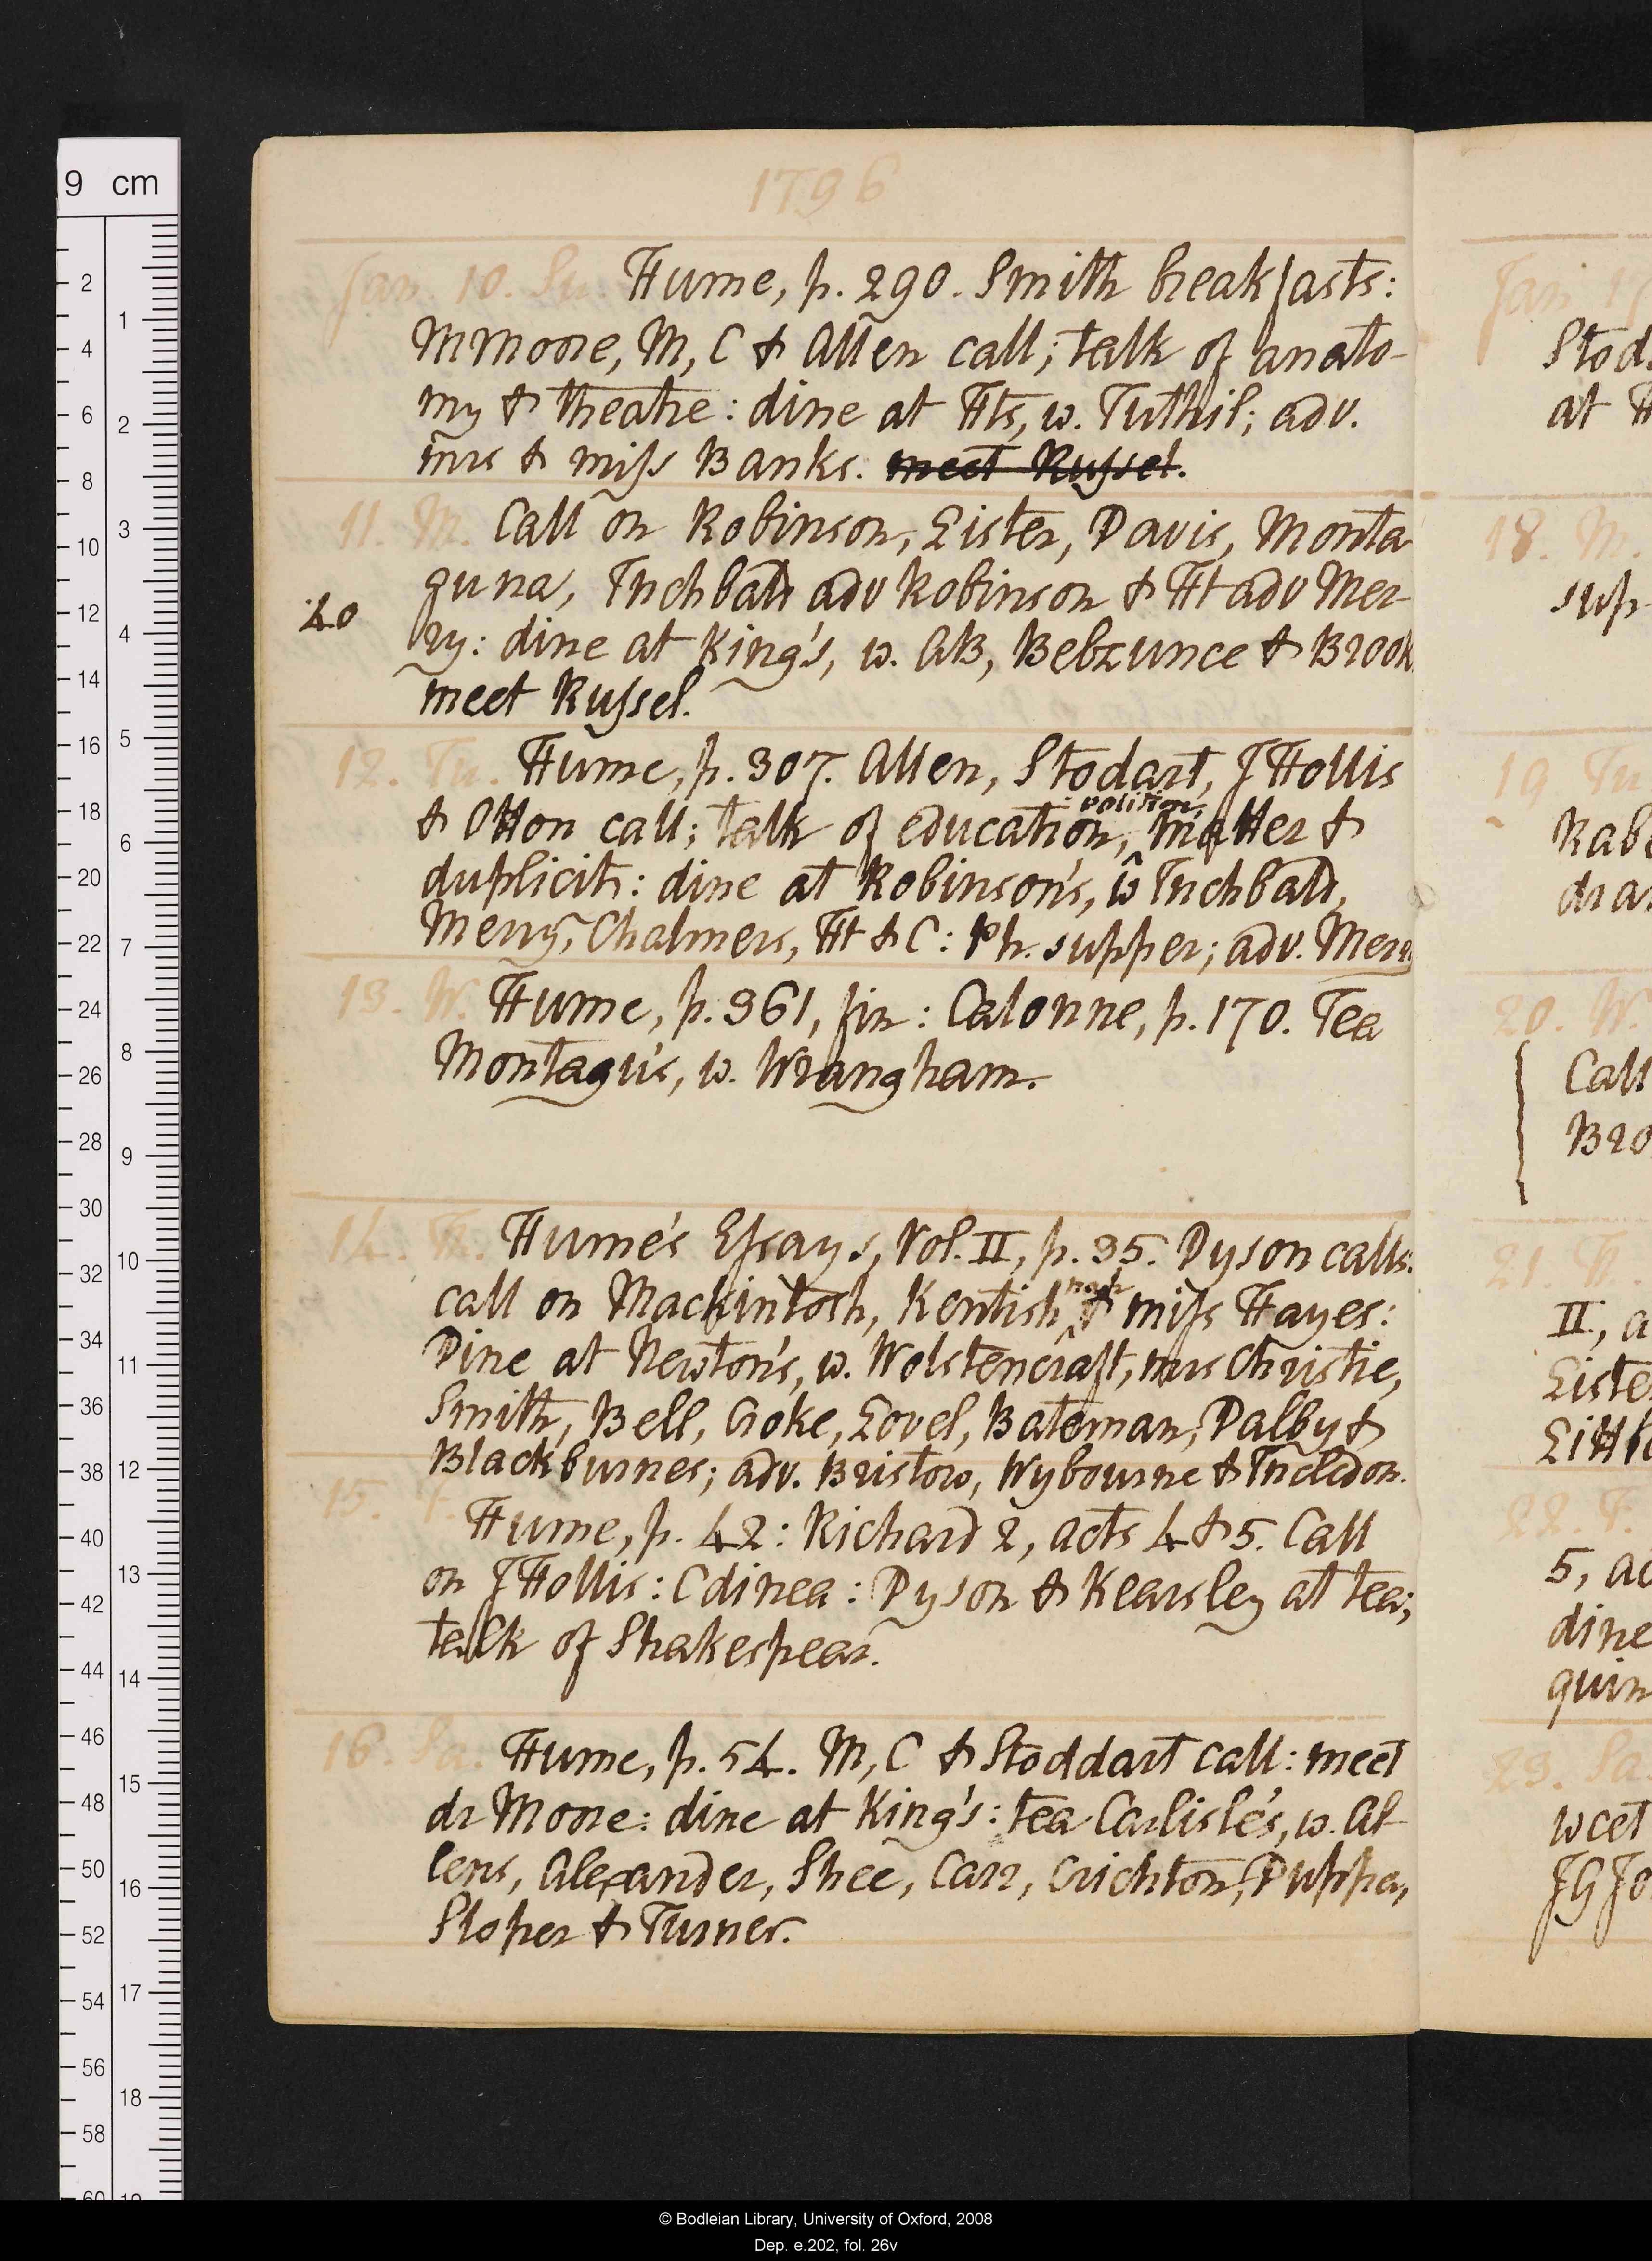 9 cm
1796
Jan. 10. Su. Hume, p. 290. Smith breakfasts:
M Moore, M, C & Allen call; talk of anato-
my & theatre: dine at Hts, w. Tuthil; adv.
mrs & miss Banks. meet Russel.
11. M. Call on Robinson, Lister, Davis, Monta
gu na, Inchbald adv Robinson & Ht adv Mer-
40
ry: dine at King's, w. AB, Belzunce & Brook
meet Russel.
12. Tu. Hume, p. 307. Allen, Stodart, J Hollis
volition,
& Otton call; talk of education, matter &
duplicity: dine at Robinson's, w Inchbald,
Merry, Chalmers, Ht & C: Ph. supper; adv. Merry
13. W. Hume, p. 361, fin: Calonne, p. 170. Tea
Montagu's, w. Wrangham.
14. Th. Hume's Essays, Vol. II, p. 35. Dyson calls:
call on Mackintosh, Kentish & miss Hayes:
Dine at Newton's, w. Wolstencraft, mrs Christie,
Smith, Bell, Goke, Lovel, Bateman, Dalby &
Blackburnes; adv. Bristow, Wybourne & Incledon.
15. F.
Hume, p. 42: Richard 2, acts 4 & 5. Call
on J Hollis: C dines: Dyson & Kearsley at tea;
talk of Shakespear.
16. Sa. Hume, p. 54. M, C & Stoddart call: meet
dr Moore: dine at King's: tea Carlisle's, w. Al-
lens, Alexander, Shee, Carr, Crichton, Duppa,
Sloper & Turner.
Jan. 17
Stod
at H
18. M.
sup
19 Tu
Rab
dra
20. W.
Call
Bro
21 Th.
II, a
Liste
Littl
22. F.
5, ac
dine
quin
23. Sa
wcet
JG Jo
© Bodleian Library, University of Oxford, 2008
Dep. e.202, fol. 26v